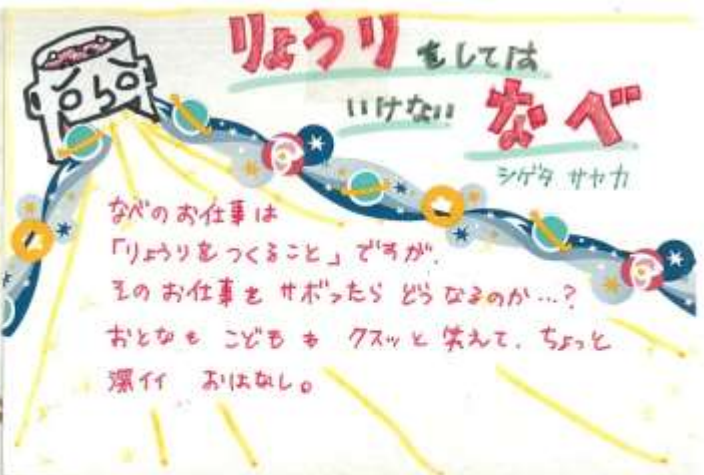 りょうり をしては
いけない なべ
シゲタ サヤカ
なべの お仕事は
「りょうりをつくること」ですが、
そのお仕事を サボったら どうなるのか…?
おとなも こどもも クスッと 笑えて、ちょっと
深イイ おはなし。